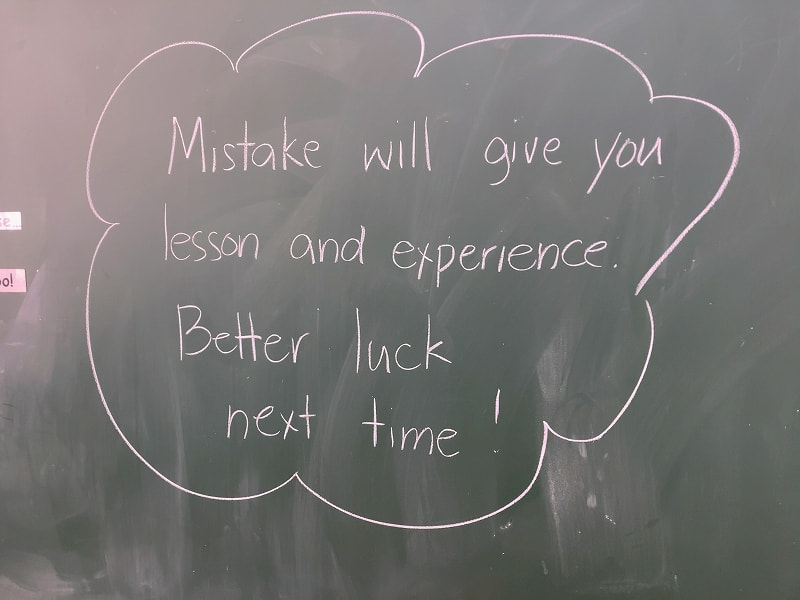 Mistake will give you
lesson and experience.
Better luck
next time!